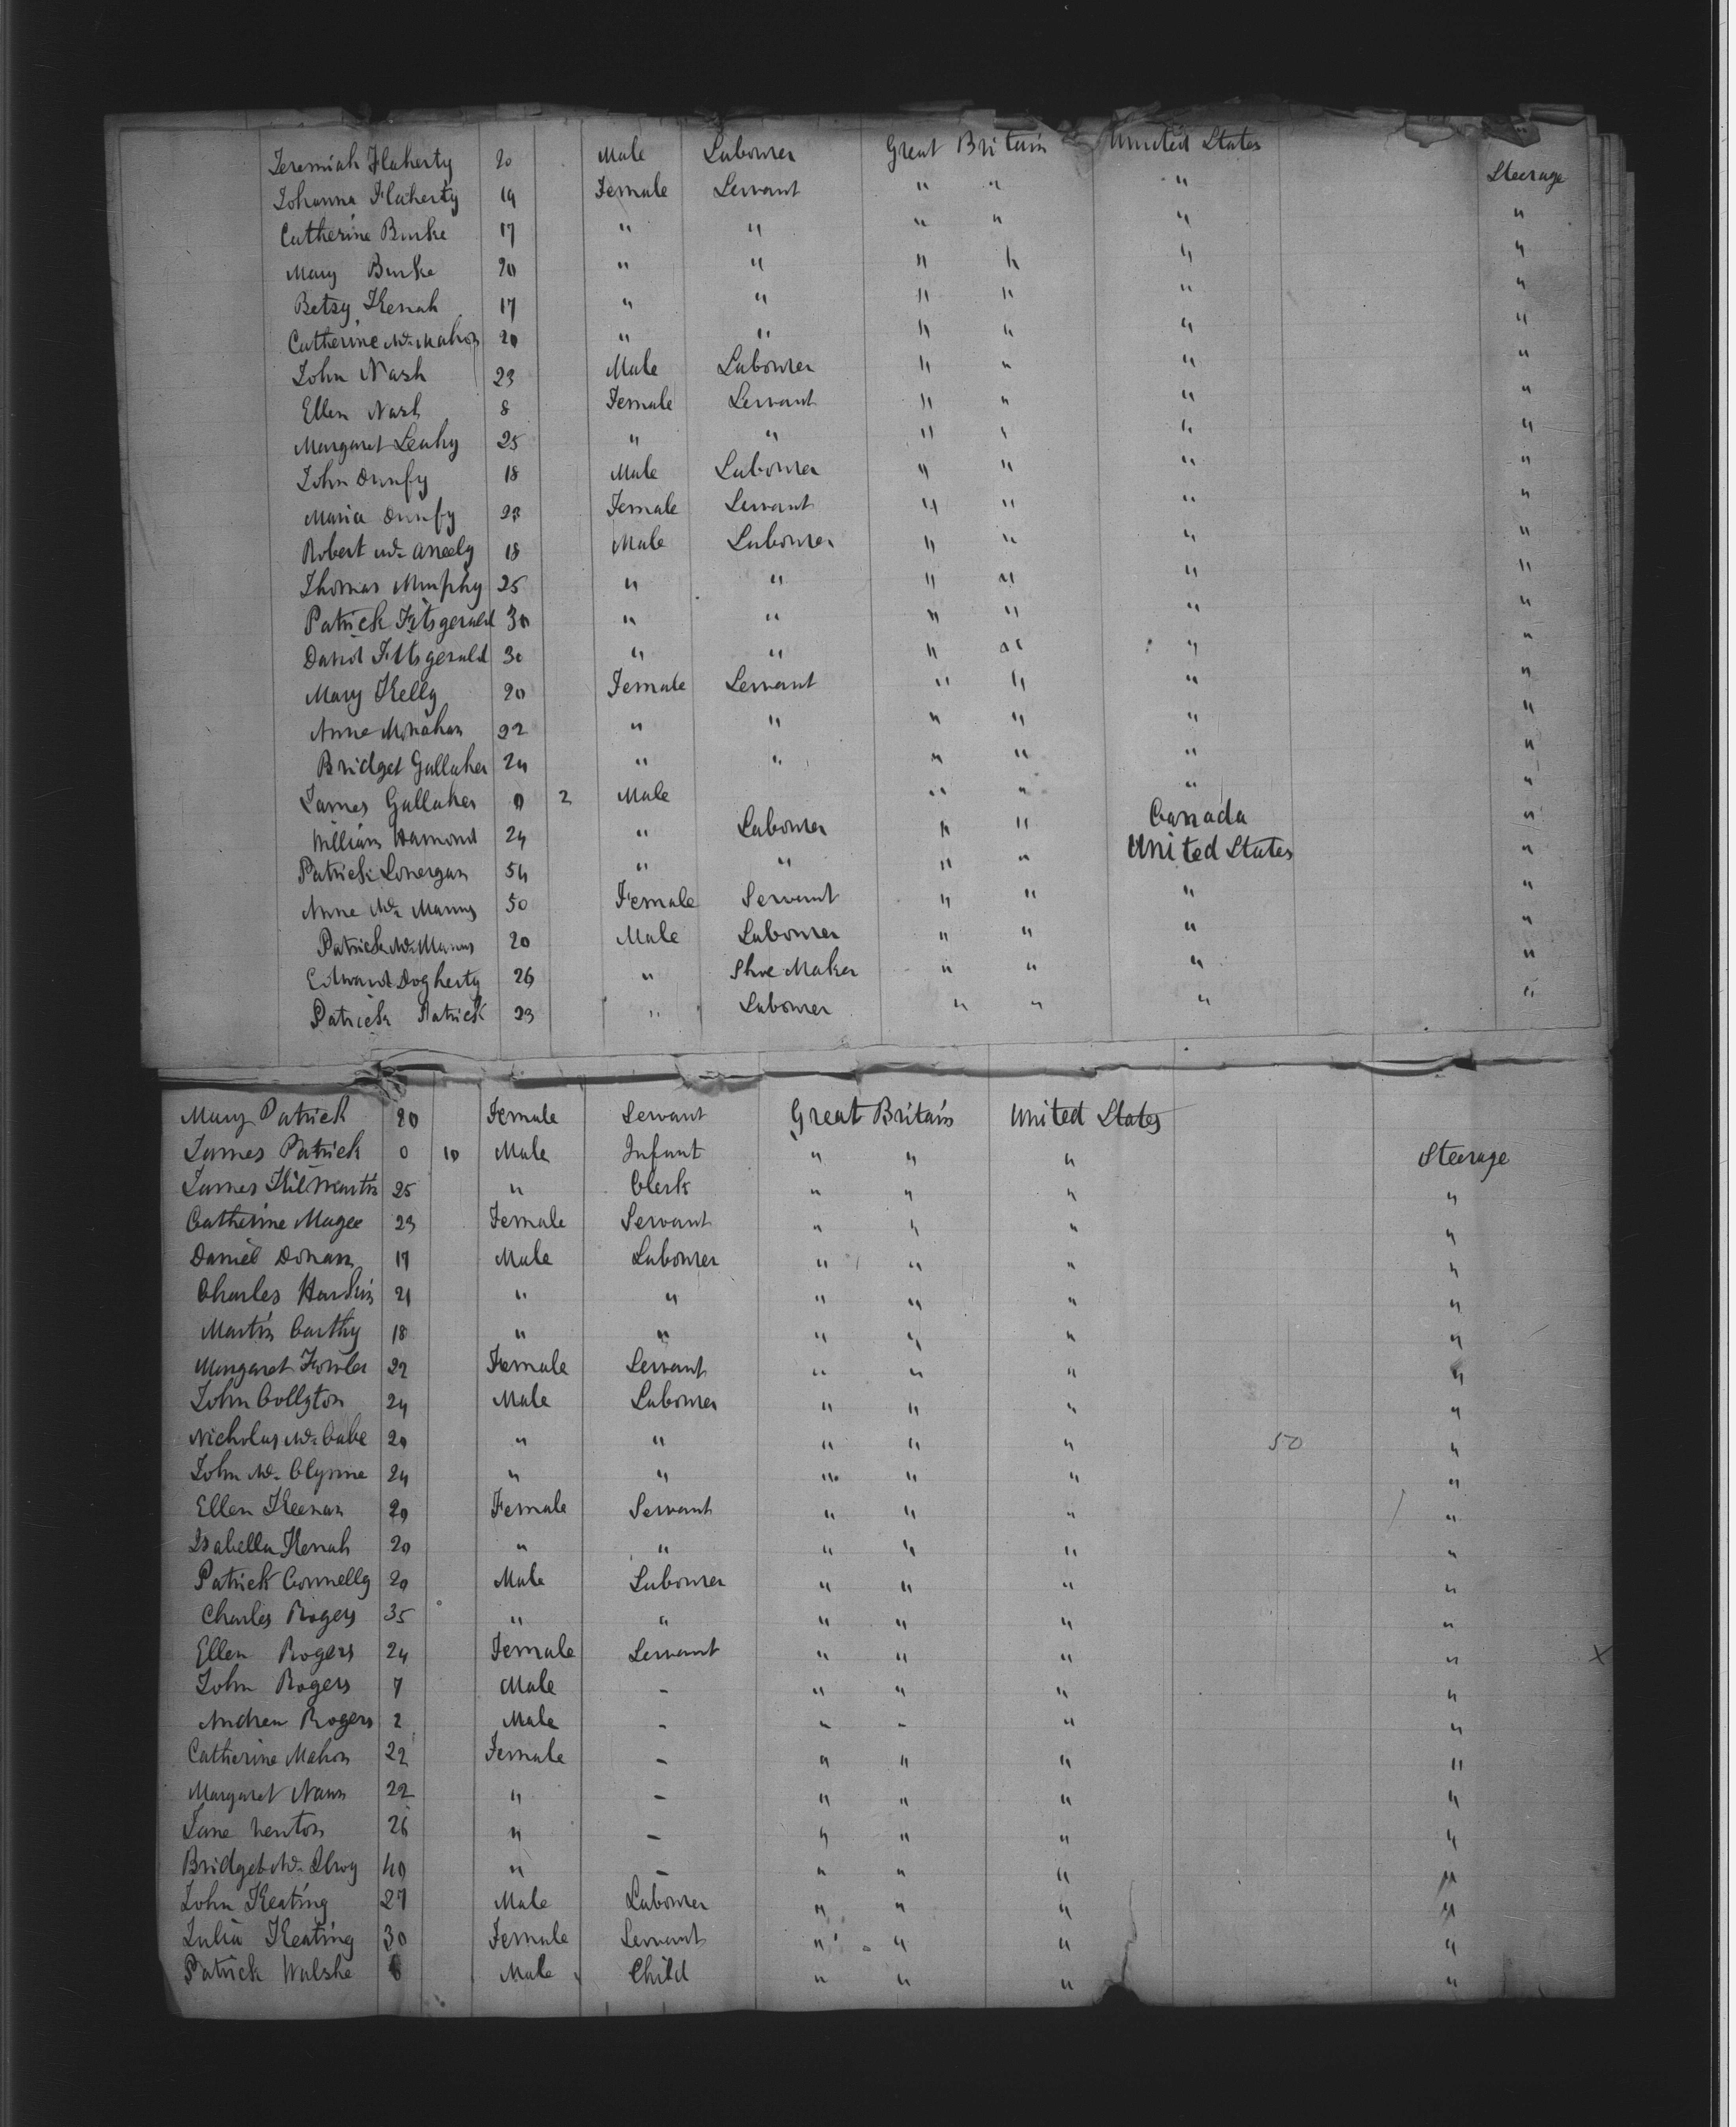 Jeremiah Flaherty 20 Male Labourer Great Britain United States Steerage
Johanna Flaherty 19 Female Servant " " " "
Catherine Burke 17 " " " " " "
Mary Burke 20 " " " " " "
Betsy Kenah 17 " " " " " "
Catherine Mc Mahon 20 " " " " " "
John Nash 23 Male Labourer " " " "
Ellen Nash 8 Female Servant " " " "
Margaret Leahy 25 " " " " " "
John Dunfy 18 Male Labourer " " " "
Maria Dunfy 23 Female Servant " " " "
Robert Mc Aneely 18 Male Labourer " " " "
Thomas Murphy 25 " " " " " "
Patrick Fitsgerald 30 " " " " " "
David Fitsgerald 30 " " " " " "
Mary Kelly 20 Female Servant " " " "
Anne Monahan 22 " " " " " "
Bridget Gallaher 24 " " " " " "
James Gallaher 0 2 Male " " " "
William Hamond 24 " Labourer " " Canada "
Patrick Lonergan 54 " " " " United States "
Anne Mc Manus 50 Female Servant " " " "
Patrick Mc Manus 20 Male Labourer " " " "
Edward Dogherty 26 " Shoe Maker " " " "
Patrick Patrick 23 " Labourer " " " "
Mary Patrick 20 Female Servant Great Britain United States
James Patrick 0 10 Male Infant " " " Steerage
James Kilmartin 25 " Clerk " " " "
Catherine Magee 23 Female Servant " " " "
Daniel Donam 17 Male Labourer " " " "
Charles Harkin 21 " " " " " "
Martin Carthy 18 " " " " " "
Margaret Fowler 22 Female Servant " " " "
John Collgton 24 Male Labourer " " " "
Nicholas Mc Cabe 20 " " " " " 50 "
John Mc Clymne 24 " " " " " "
Ellen Keenan 20 Female Servant " " " "
Isabella Kenah 20 " " " " " "
Patrick Connelly 20 Male Labourer " " " "
Charles Rogers 35 " " " " " "
Ellen Rogers 24 Female Servant " " " " X
John Rogers 7 Male - " " " "
Andrew Rogers 2 Male - " " " "
Catherine Mahon 22 Female - " " " "
Margaret Nann 22 " - " " " "
Jane Newton 26 " - " " " "
Bridget Mc Ilroy 40 " - " " " "
John Keating 27 Male Labourer " " " "
Julia Keating 30 Female Servant " " " "
Patrick Walshe 6 Male Child " " " "